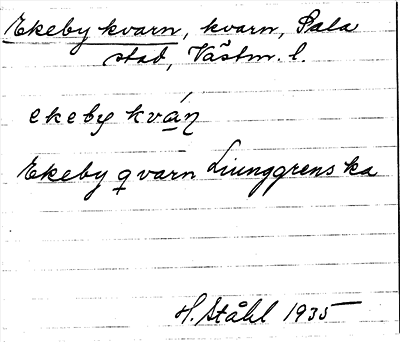 Ekeby kvarn, kvarn, Sala
stad, Västm. l.
ekeby kváɳ
Ekeby qvarn Liunggrens ka
H. Ståhl 1935